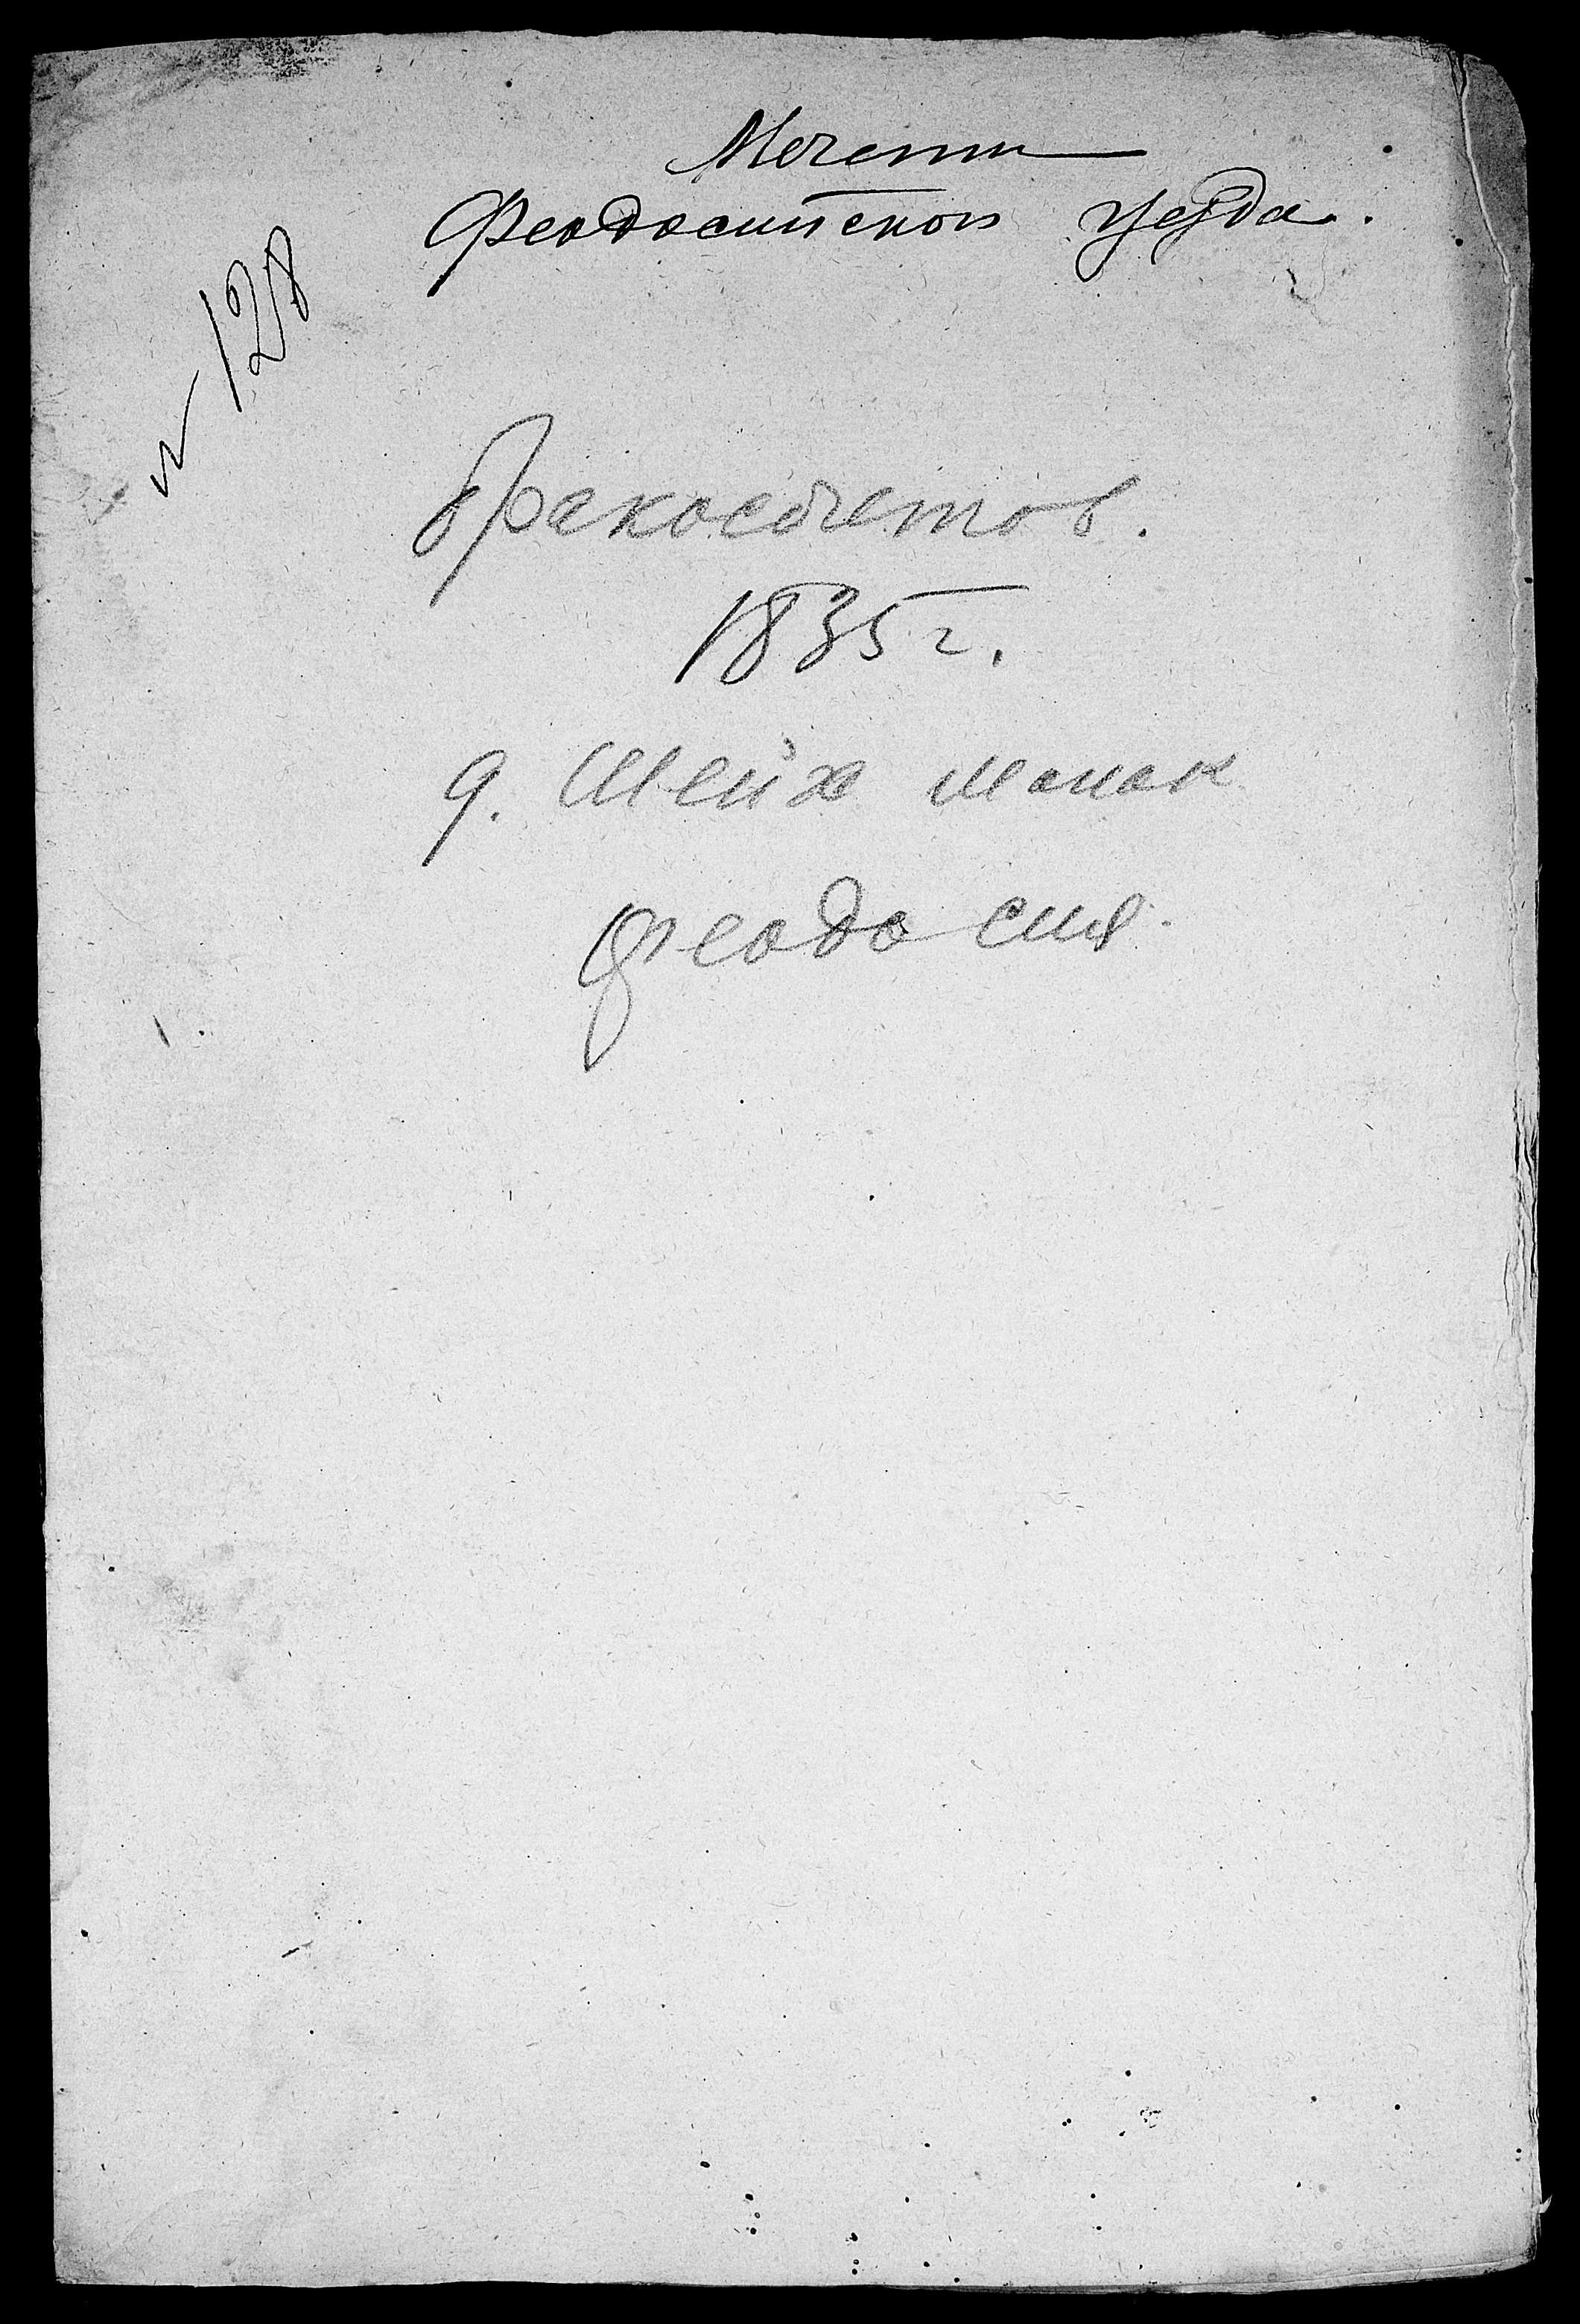 Мечети
Феодосийскои уезда.
N 128
Бракосочетов.
1835 г.
д. Шейх Манак
Феодосия.